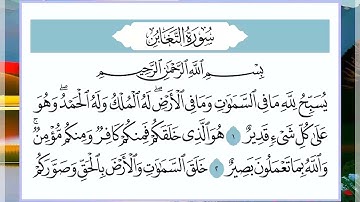 سُورَةُ التَّغَابُنِ
بِسْمِ اللَّهِ الرَّحْمَٰنِ الرَّحِيمِ
يُسَبِّحُ لِلَّهِ مَا فِي السَّمَاوَاتِ وَمَا فِي الْأَرْضِ ۖ لَهُ الْمُلْكُ وَلَهُ الْحَمْدُ ۖ وَهُوَ
عَلَىٰ كُلِّ شَيْءٍ قَدِيرٌ ١ هُوَ الَّذِي خَلَقَكُمْ فَمِنكُمْ كَافِرٌ وَمِنكُم مُّؤْمِنٌ ۚ
وَاللَّهُ بِمَا تَعْمَلُونَ بَصِيرٌ ٢ خَلَقَ السَّمَاوَاتِ وَالْأَرْضَ بِالْحَقِّ وَصَوَّرَكُمْ